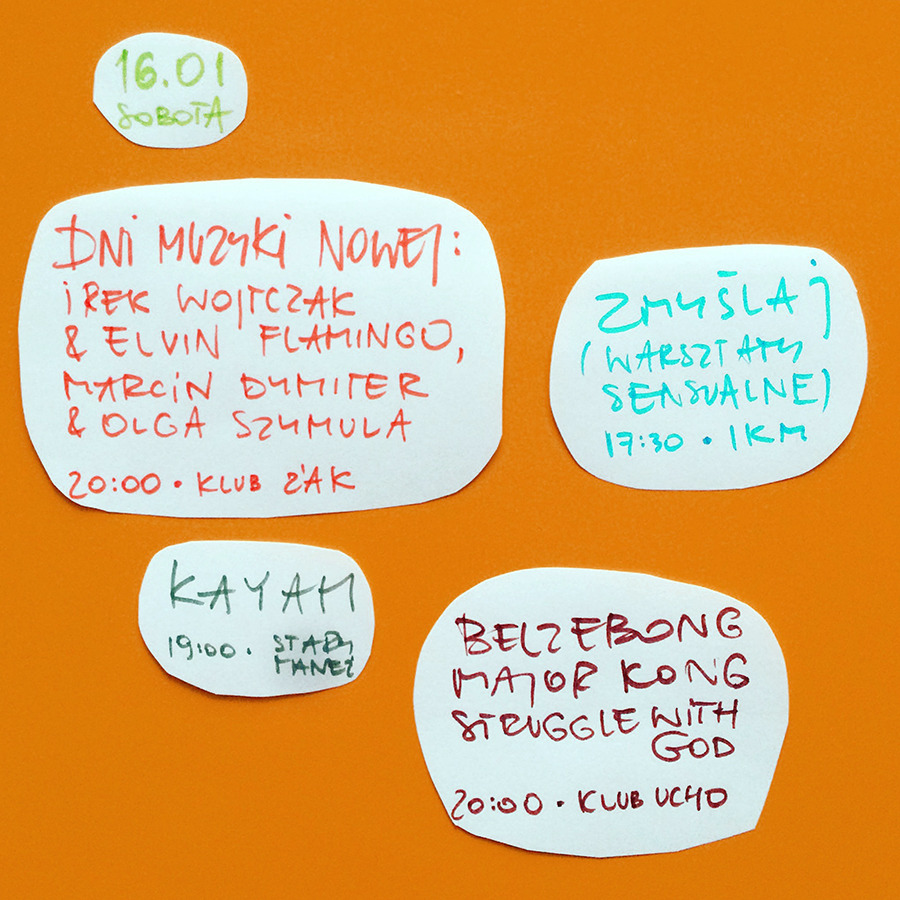 16.01
SOBOTA
DNI MUZYKI NOWEJ:
IREK WOJTCZAK
& ELVIN FLAMINGO,
MARCIN DYMITER
& OLGA SZYMULA
20:00 • KLUB ŻAK
ZMYŚLAJ
(WARSZTATY
SENSUALNE)
17:30 • IKM
KAYAH
19:00 • STARY
MANEŻ
BELZEBONG
MAJOR KONG
STRUGGLE WITH
GOD
20:00 • KLUB UCHO